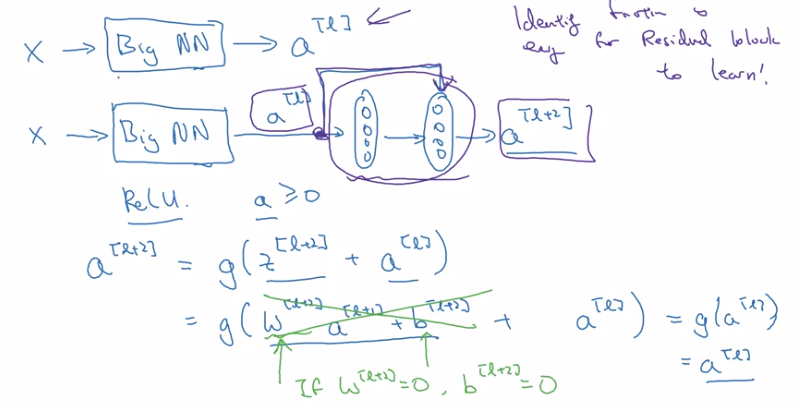 X → Big NN → a^[l]
Identity function is
easy for Residual block
to learn!
X → Big NN a^[l] → → a^[l+2]
ReLU. a ≥ 0
a^[l+2] = g(z^[l+2] + a^[l])
= g(W^[l+2] a^[l+1] + b^[l+2] + a^[l]) = g(a^[l])
= a^[l]
If W^[l+2] = 0, b^[l+2] = 0